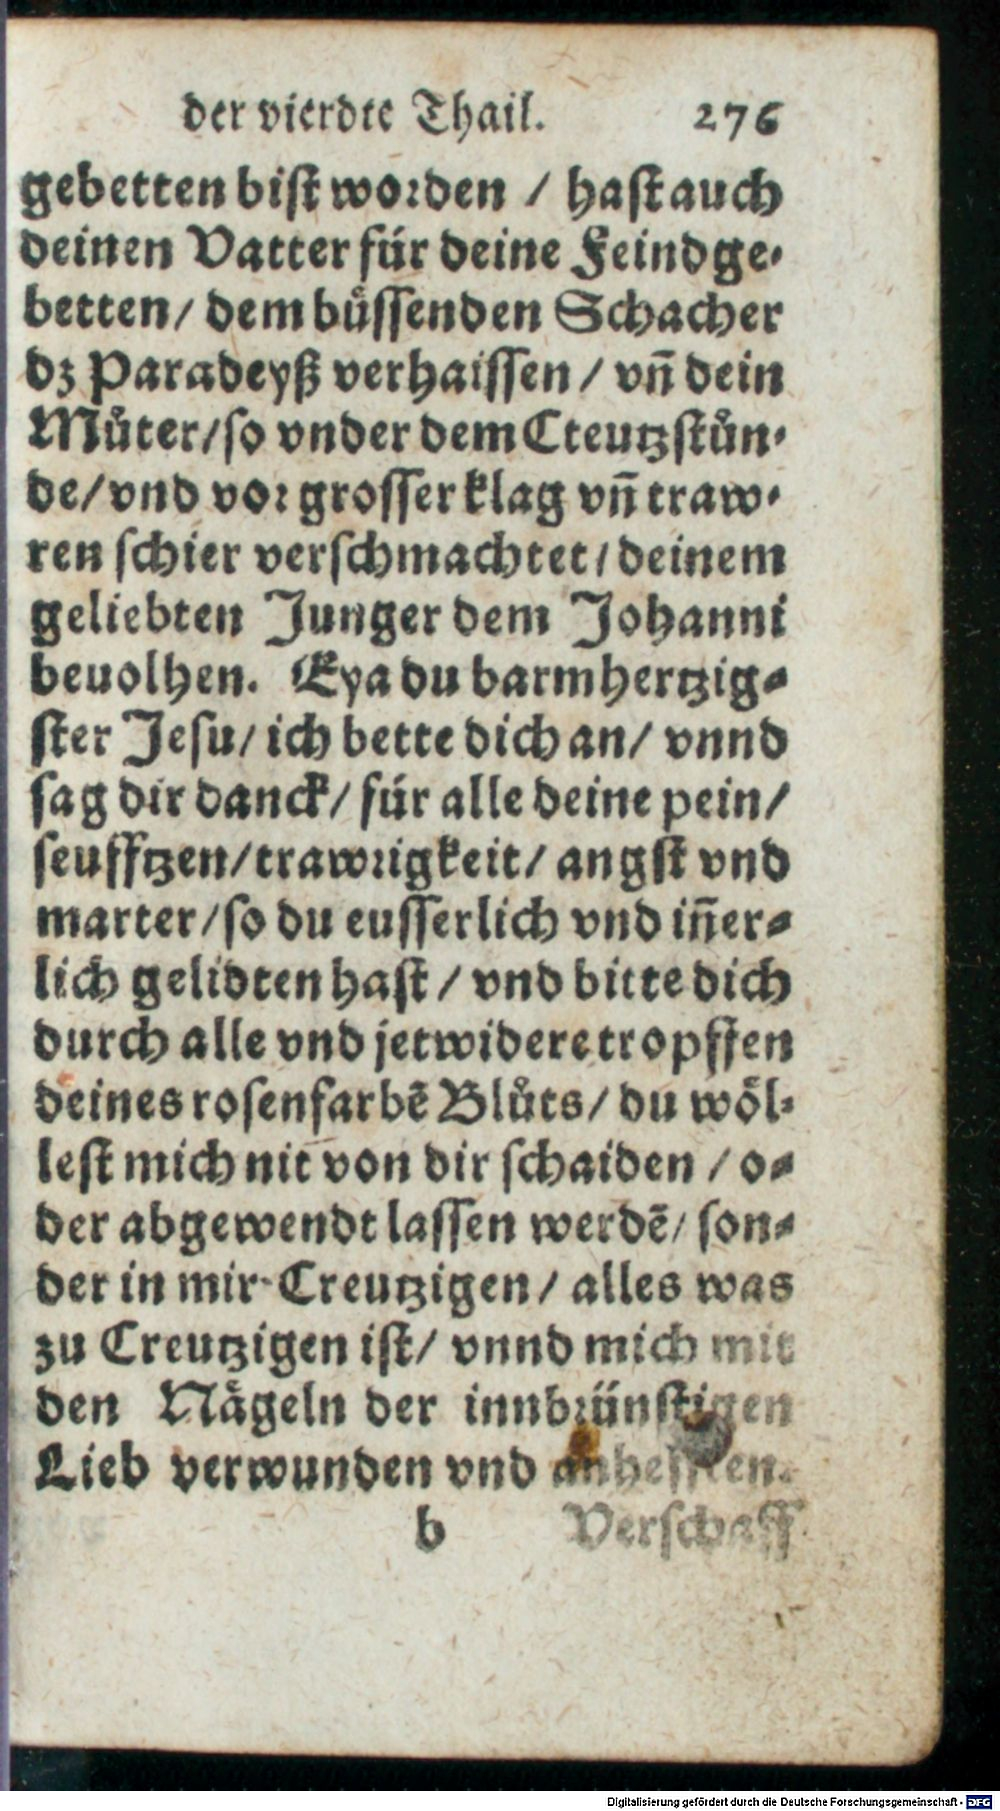 der vierdte Thail. 276
gebetten bist worden / hast auch
deinen Vatter für deine Feind ge-
betten / dem büssenden Schacher
dz Paradeyß verhaissen / vñ dein
Můter / so vnder dem Cteutz stůn-
de / vnd vor grosser klag vñ traw-
ren schier verschmachtet / deinem
geliebten Junger dem Johanni
beuolhen. Eya du barmhertzig-
ster Jesu / ich bette dich an / vnnd
sag dir danck / für alle deine pein /
seufftzen / trawrigkeit / angst vnd
marter / so du eusserlich vnd iñer-
lich gelidten hast / vnd bitte dich
durch alle vnd jetwidere tropffen
deines rosenfarbẽ Blůts / du wöl-
lest mich nit von dir schaiden / o-
der abgewendt lassen werdẽ / son-
der in mir Creutzigen / alles was
zu Creutzigen ist / vnnd mich mit
den Någeln der innbrünstigen
Lieb verwunden vnd anhefften.
b Verschaff
Digitalisierung gefördert durch die Deutsche Forschungsgemeinschaft - DFG